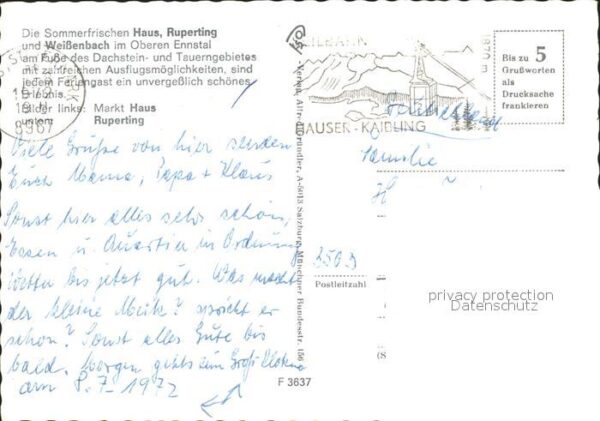 Die Sommerfrischen Haus, Ruperting
und Weißenbach im Oberen Ennstal
am Fuße des Dachstein- und Tauerngebietes
mit zahlreichen Ausflugsmöglichkeiten, sind
jedem Feriengast ein unvergeßlich schönes
Erlebnis.
Bilder links: Markt Haus
unten: Ruperting
8967
Viele Grüße von hier senden
Euch Mama, Papa + Klaus
Sonst hier alles sehr schön,
Essen u. Quartier in Ordnung
Wetter bis jetzt gut. Was macht
der kleine Meik? spricht er
schon? Sonst alles Gute bis
bald. Morgen gehts zum Groß Glockner
am 8.7-1972
Verlag Alfred Gründler, A-5013 Salzburg, Münchner Bundesstr. 156
SEILBAHN
1870 m
HAUSER-KAIBLING
Bis zu 5
Grußworten
als
Drucksache
frankieren
Familie
H
Postleitzahl
privacy protection
Datenschutz
(S
F 3637